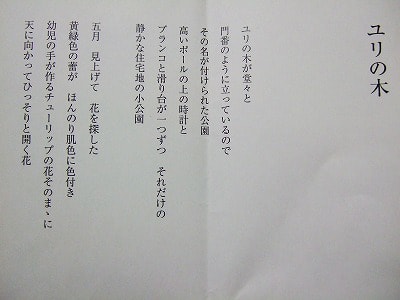 ユリの木
ユリの木が堂々と
門番のように立っているので
その名が付けられた公園
高いポールの上の時計と
ブランコと滑り台が一つずつ それだけの
静かな住宅地の小公園
五月 見上げて 花を探した
黄緑色の蕾が ほんのり肌色に色付き
幼児の手が作るチューリップの花そのまゝに
天に向かってひっそりと開く花